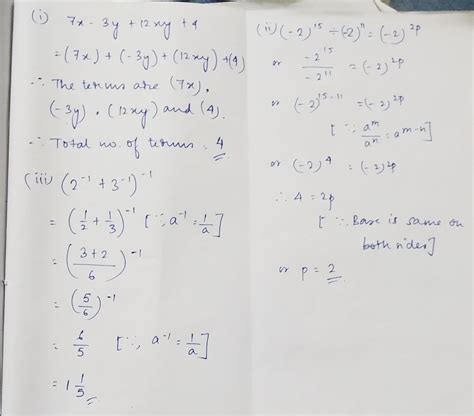 (i) 7x - 3y + 12xy + 4
= (7x) + (-3y) + (12xy) + (4)
∴ The terms are (7x),
(-3y), (12xy) and (4).
∴ Total no. of terms: 4
(iii) (2⁻¹ + 3⁻¹)⁻¹
= (1/2 + 1/3)⁻¹ [∵ a⁻¹ = 1/a]
= ((3+2)/6)⁻¹
= (5/6)⁻¹
= 6/5 [∵, a⁻¹ = 1/a]
= 1 1/5
(ii) (-2)¹⁵ ÷ (-2)¹¹ = (-2)²ᵖ
or -2¹⁵/-2¹¹ = (-2)²ᵖ
or (-2)¹⁵⁻¹¹ = (-2)²ᵖ
[∵ aᵐ/aⁿ = aᵐ⁻ⁿ]
or (-2)⁴ = (-2)²ᵖ
∴ 4 = 2p
[∵ Base is same on
both sides]
or p = 2